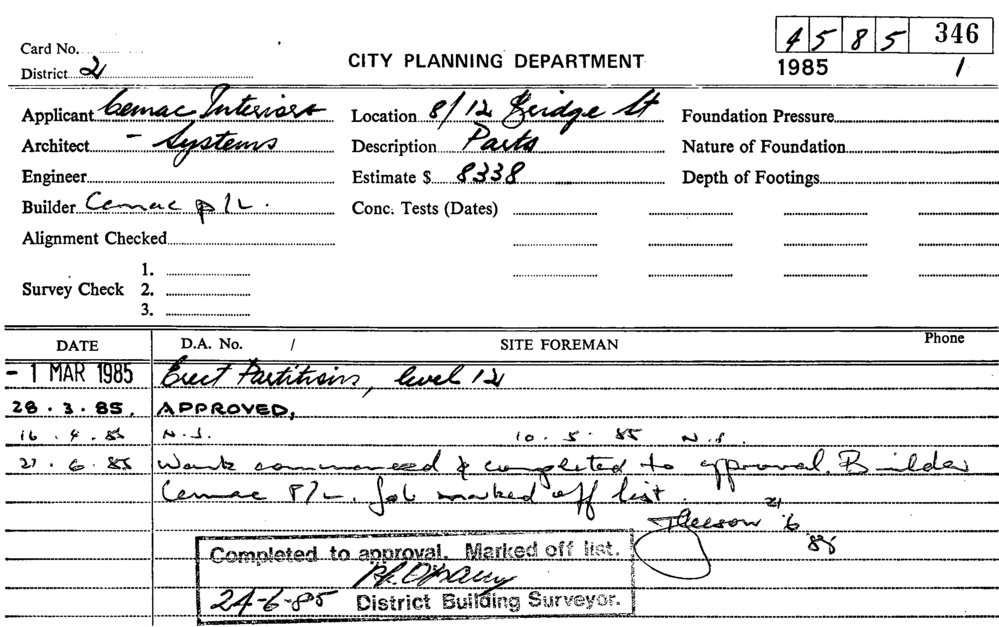 4 5 8 5 346
Card No.
CITY PLANNING DEPARTMENT
1985 1
District 2
Applicant Cemac Interiors Location 8/12 Bridge St Foundation Pressure
Architect - Systems Description Parts Nature of Foundation
Engineer Estimate $ 8338 Depth of Footings
Builder Cemac P/L. Conc. Tests (Dates)
Alignment Checked
1.
Survey Check 2.
3.
DATE D.A. No. / SITE FOREMAN Phone
- 1 MAR 1985 Erect Partitions, level 12
28 . 3 . 85. APPROVED.
16 . 4 . 85 N.S. 10 . 5 . 85 N.S.
21 . 6 . 85 Work commenced & completed to approval. Builder
Cemac P/L. Job marked off list.
21
6
85
Completed to approval. Marked off list.
24-6-85 District Building Surveyor.